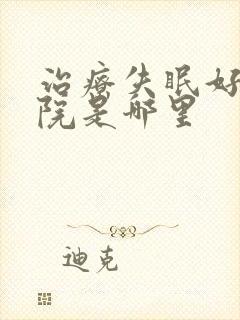 治疗失眠好
院是哪里
迪克